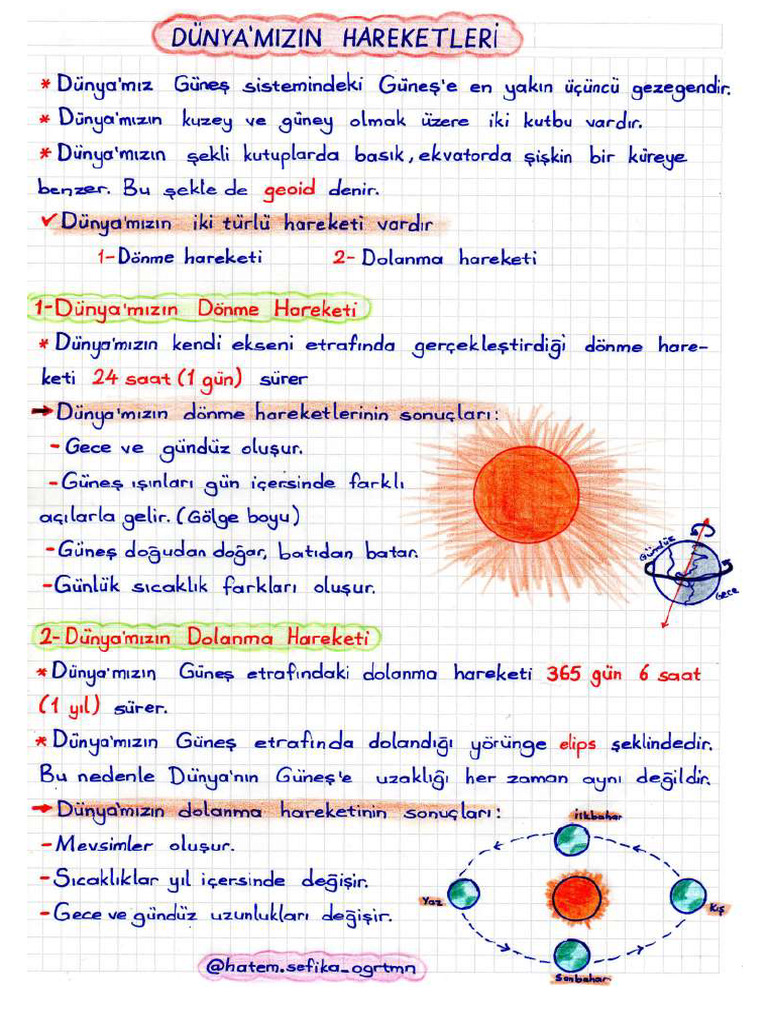 DÜNYA'MIZIN HAREKETLERİ
* Dünya'mız Güneş sistemindeki Güneş'e en yakın üçüncü gezegendir.
* Dünya'mızın kuzey ve güney olmak üzere iki kutbu vardır.
* Dünya'mızın şekli kutuplarda basık, ekvatorda şişkin bir küreye
benzer. Bu şekle de geoid denir.
✓ Dünya'mızın iki türlü hareketi vardır
1-Dönme hareketi 2- Dolanma hareketi
1-Dünya'mızın Dönme Hareketi
* Dünya'mızın kendi ekseni etrafında gerçekleştirdiği dönme hare-
keti 24 saat (1 gün) sürer
→ Dünya'mızın dönme hareketlerinin sonuçları:
- Gece ve gündüz oluşur.
- Güneş ışınları gün içersinde farklı
açılarla gelir. (Gölge boyu)
- Güneş doğudan doğar, batıdan batar.
- Günlük sıcaklık farkları oluşur.
Gündüz
Gece
2- Dünya'mızın Dolanma Hareketi
* Dünya'mızın Güneş etrafındaki dolanma hareketi 365 gün 6 saat
(1 yıl) sürer.
* Dünya'mızın Güneş etrafında dolandığı yörünge elips şeklindedir.
Bu nedenle Dünya'nın Güneş'e uzaklığı her zaman aynı değildir.
→ Dünya'mızın dolanma hareketinin sonuçları:
- Mevsimler oluşur.
- Sıcaklıklar yıl içersinde değişir.
- Gece ve gündüz uzunlukları değişir.
İlkbahar
Yaz
Kış
Sonbahar
@hatem.sefika_ogrtmn